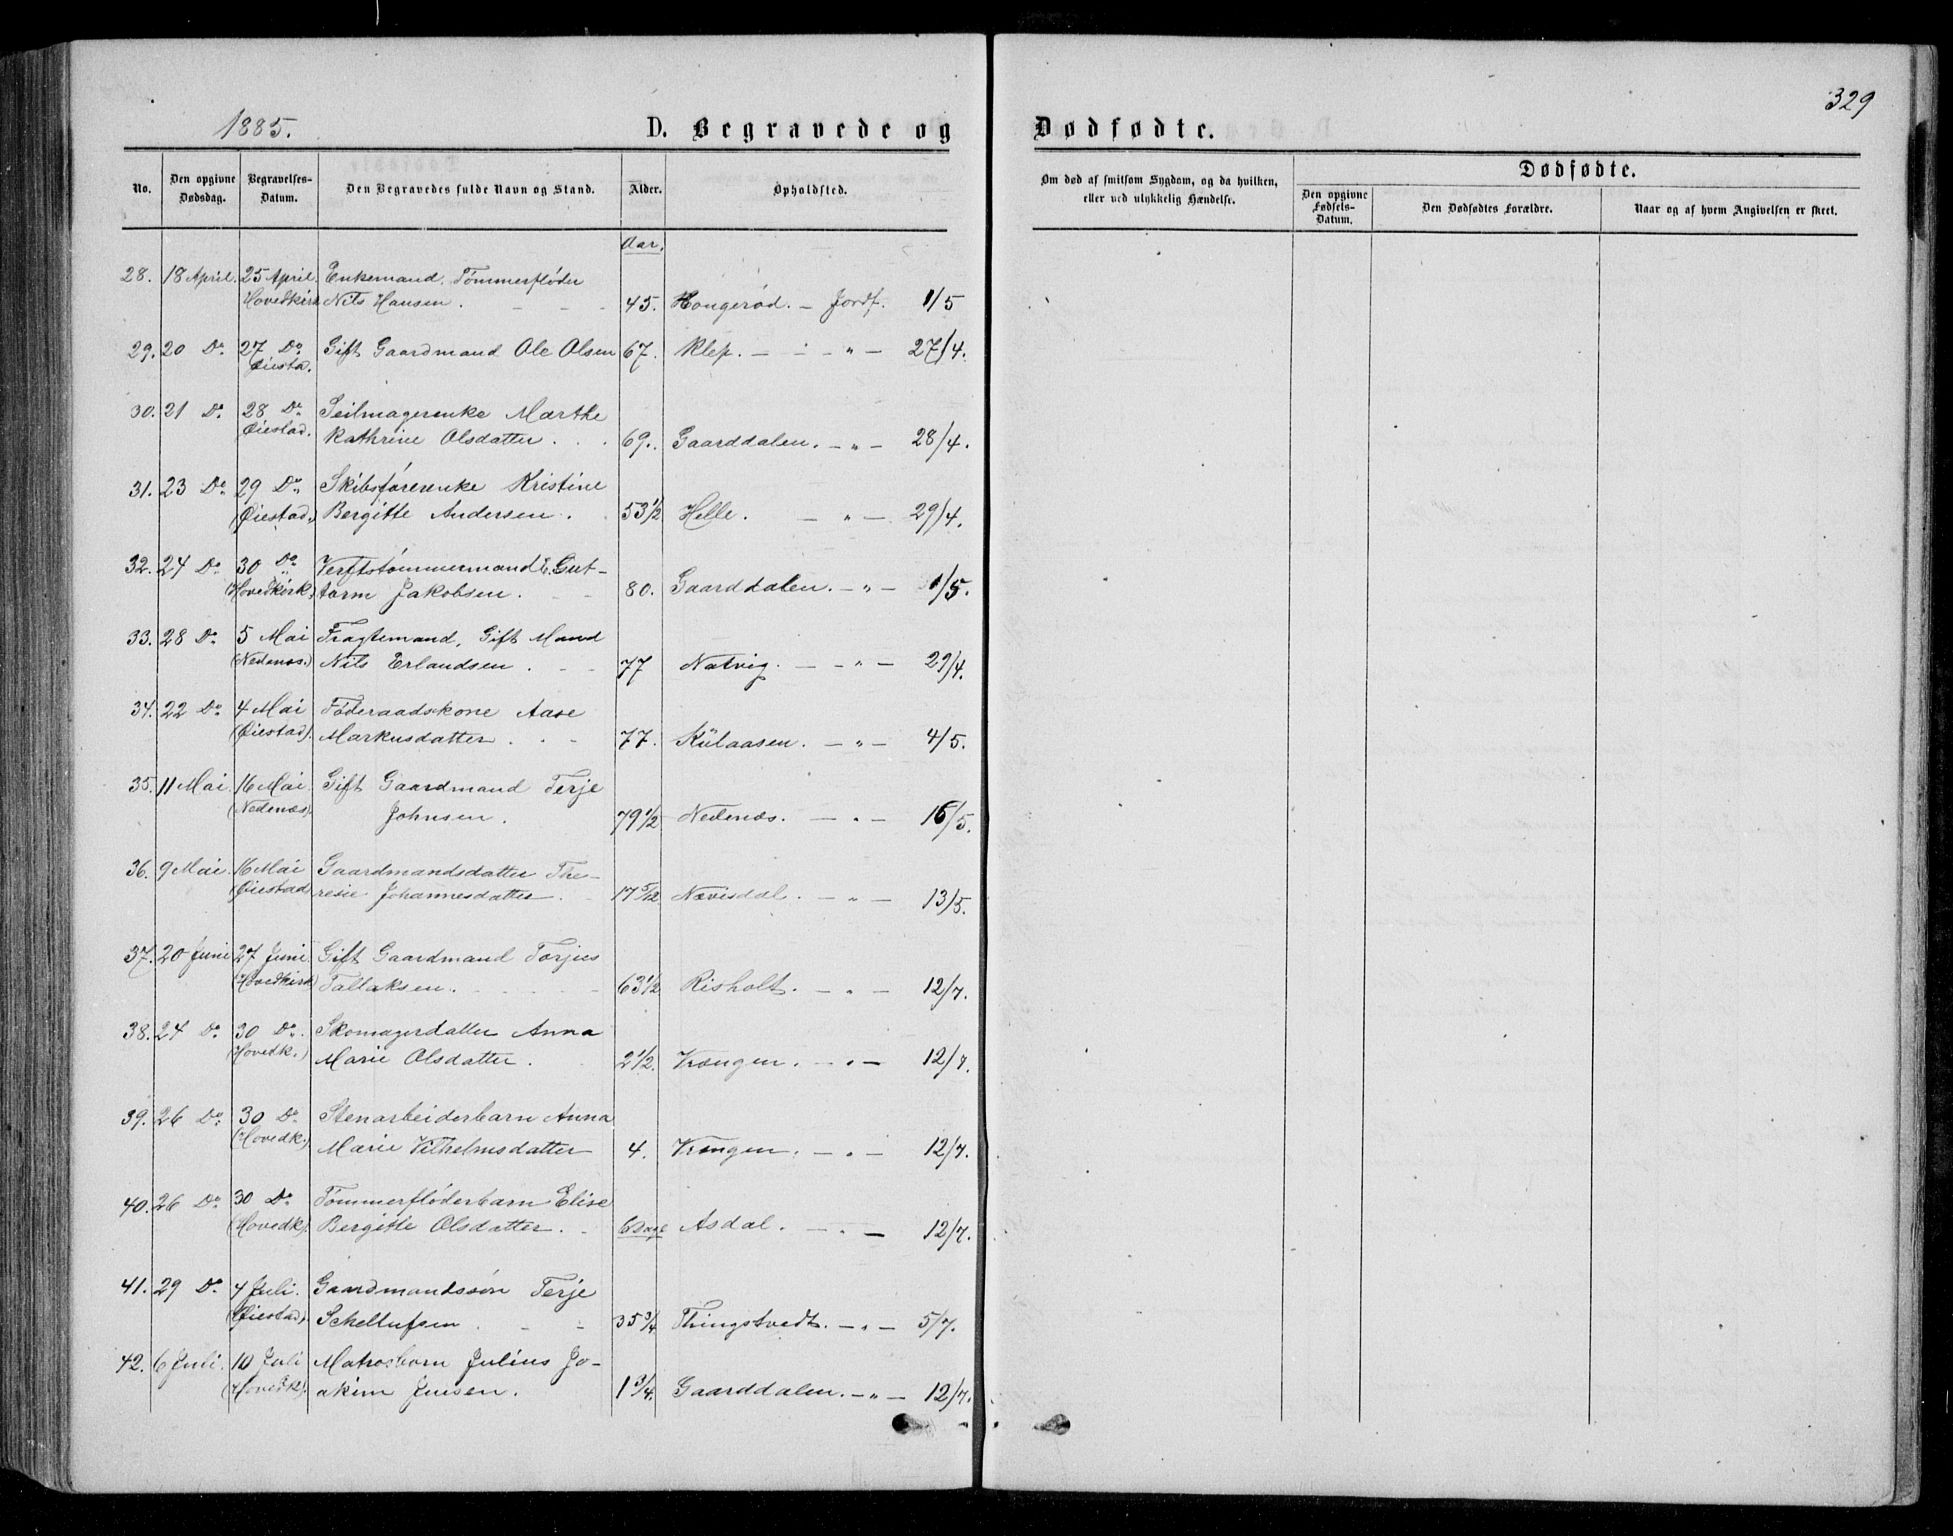 1885.
D. Begravede og
Dødfødte.
329
No.
Den opgivne Dødsdag.
Begravelses-Datum.
Den Begravedes fulde Navn og Stand.
Alder.
Opholdsted.
Om død af smitsom Sygdom, og da hvilken, eller ved ulykkelig Hændelse.
Dødfødte.
Den opgivne Fødsels-Datum.
Den Dødfødtes Forældre.
Naar og af hvem Angivelsen er skeet.
Aar.
28. 18 April. 25 April. Enkemand. Tømmerfløder
Hovedkirk Nils Hansen. 45. Hougerød. — Jordf. 1/5
29. 20 Do 27 Do Gift Gaardmand Ole Olsen 67. Klep. — " — 27/4.
Øiesta.
30. 21 Do 28 Do Seilmagerenke Marthe
Øiestad. Kathrine Olsdatter. 69. Gaarddalen. — " — 28/4.
31. 23 Do 29 Do Skibsførerenke Kristine
(Øiestad.) Bergitte Andersen. 53 1/2 Helle. — " — 29/4.
32. 24 Do 30 Do Verftstømmermand E. Gut-
(Hovedkirk.) torm Jakobsen. 80. Gaarddalen. — " — 1/5.
33. 28 Do 5 Mai Fragtemand, Gift Mand
(Nedenæs.) Nils Erlandsen. 77 Natvig. — " — 29/4.
34. 22 Do 4 Mai Føderaadskone Aase
(Øiestad). Markusdatter. 77. Külaasen. — " — 4/5.
35. 11 Mai 16 Mai Gift Gaardmand Terje
(Nedenæs). Johnsen. 79 1/2 Nedenæs. — " — 16/5.
36. 9 Mai 16 Mai Gaardmandsdatter The-
(Øiestad resie Johannesdatter. 17 5/12 Nævisdal. — " — 13/5.
37. 20 Juni 27 Juni Gift Gaardmand Torjus
(Hovedkirk) Tallaksen. 63 1/2 Risholt. — " — 12/7.
38. 24 Do 30 Do. Skomagerdatter Anna
(Hovedk.) Marie Olsdatter. 2 1/2. Krængen. — " — 12/7.
39. 26 Do 30 Do Stenarbeiderbarn Anna
(Hovedk.) Marie Vilhelmsdatter 4. Krængen. — " — 12/7.
40. 26 Do 30 Do Tømmerfløderbarn Elise
(Hovedk). Bergitte Olsdatter. 6 Dage Asdal. — " — 12/7.
41. 29 Do 4 Juli. Gaardmandssøn Terje
(Øiestad) Schellufsen. 35 3/4 Thingstvedt. — " — 5/7.
42. 6 Juli. 10 Juli Matrosbarn Julius Jo-
(Hovedk). akim Jensen. 1 3/4. Gaarddalen. — " — 12/7.